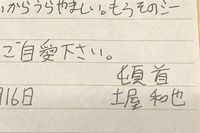 からうらやましい。もうそのシー
ご自愛下さい。
頓首
月16日
土屋和也